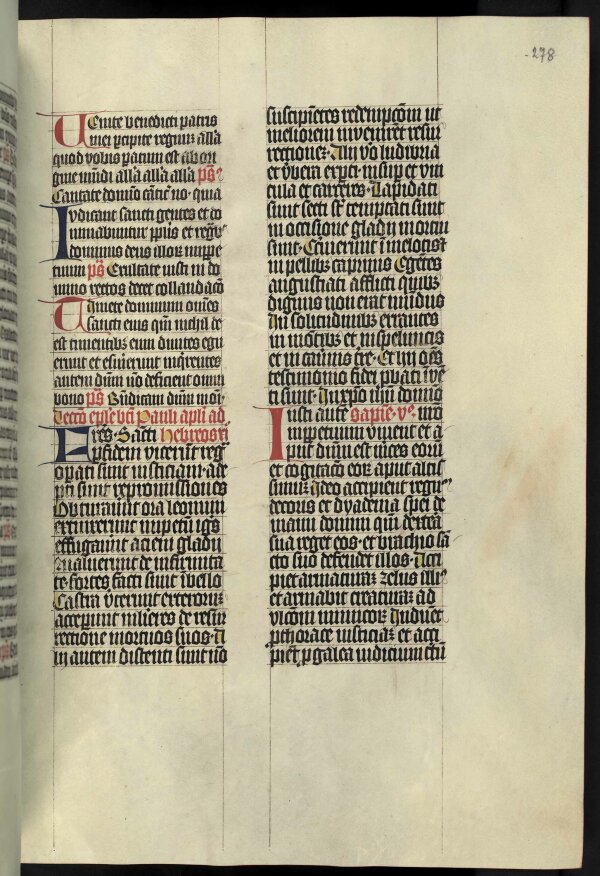 278
Venite benedicti patris
mei ꝑcipite regnuꝫ alla
quod vobis paratum est ab ori
gine mūdi alla alla alla ps̄
Cantate domino cātic̄ no· quia
Iudicant sancti gentes et do
minabuntur ppl̓is et regͥ
dominus deus illoꝝ inꝑpe
tuum ps̄ Exultate iusti in do
mino rectos decet collaudacō
Timete dominum om̄es
sancti eius qm̄ nichil de
est timentibꝫ eum diuites egu
erunt et esurierunt inq̓rentes
autem dūm nō deficient omni
bono ps̄ Bn̄dicam dūm in om̄i
lectō epl̓e bt̄i Pauli apl̓i ad
Fres· Sancti Hebreos
ꝑ fidem vicerūt reg
operati sunt iusticiam· ade
pti sunt repromissiones
Obturauūt ora leonum
extinxerunt impetū igis
effugauūt aciem gladij
ualuerunt de infirmita
te· fortes facti sunt ī bello
Castra v̓terunt exteroruꝫ
acceperunt mlīeres de resur
rectione mortuos suos· A
lij autem distenti sunt nō
suscipiētes redempcōm ut
meliorem inuenirēt resur
rectionē· Alij v̓o ludibria
et v̓bera exꝑti· insuꝑ et vin
cula et carceres· Lapidati
sunt secti sūt temptati sunt
in occisione gladij mortui
sunt· Circuierunt ī melotis
in pellibꝫ caprinis Egētes
angustiati afflicti quibꝫ
dignus non erat mūdus
In solitudinibꝫ errantes
in mōtibꝫ et in speluncis
et in cauernis tr̄e· Et hij om̄s
testimonio fidei ꝓbati īvē
ti sunt· In xp̄o ih̄u domino
Iusti autē sapie· v̊· nr̄o
inꝑpetuum viuent et a
put dūm est m̄ces eorū
et cogitacō eoꝝ aput altis
simuꝫ· Ideo accipient regnū
decoris et dyadema sp̄ei de
manu domini qm̄ dextera
sua teget eos· et brachio sā
cto suo defendet illos· Acci
piet armaturaꝫ zelus illi
et armabit creaturaꝫ ad
vlcōm inimicoꝝ Induet
ꝓ thorace iusticiaꝫ et acci
piet ꝓ galea iudicium c̄tū